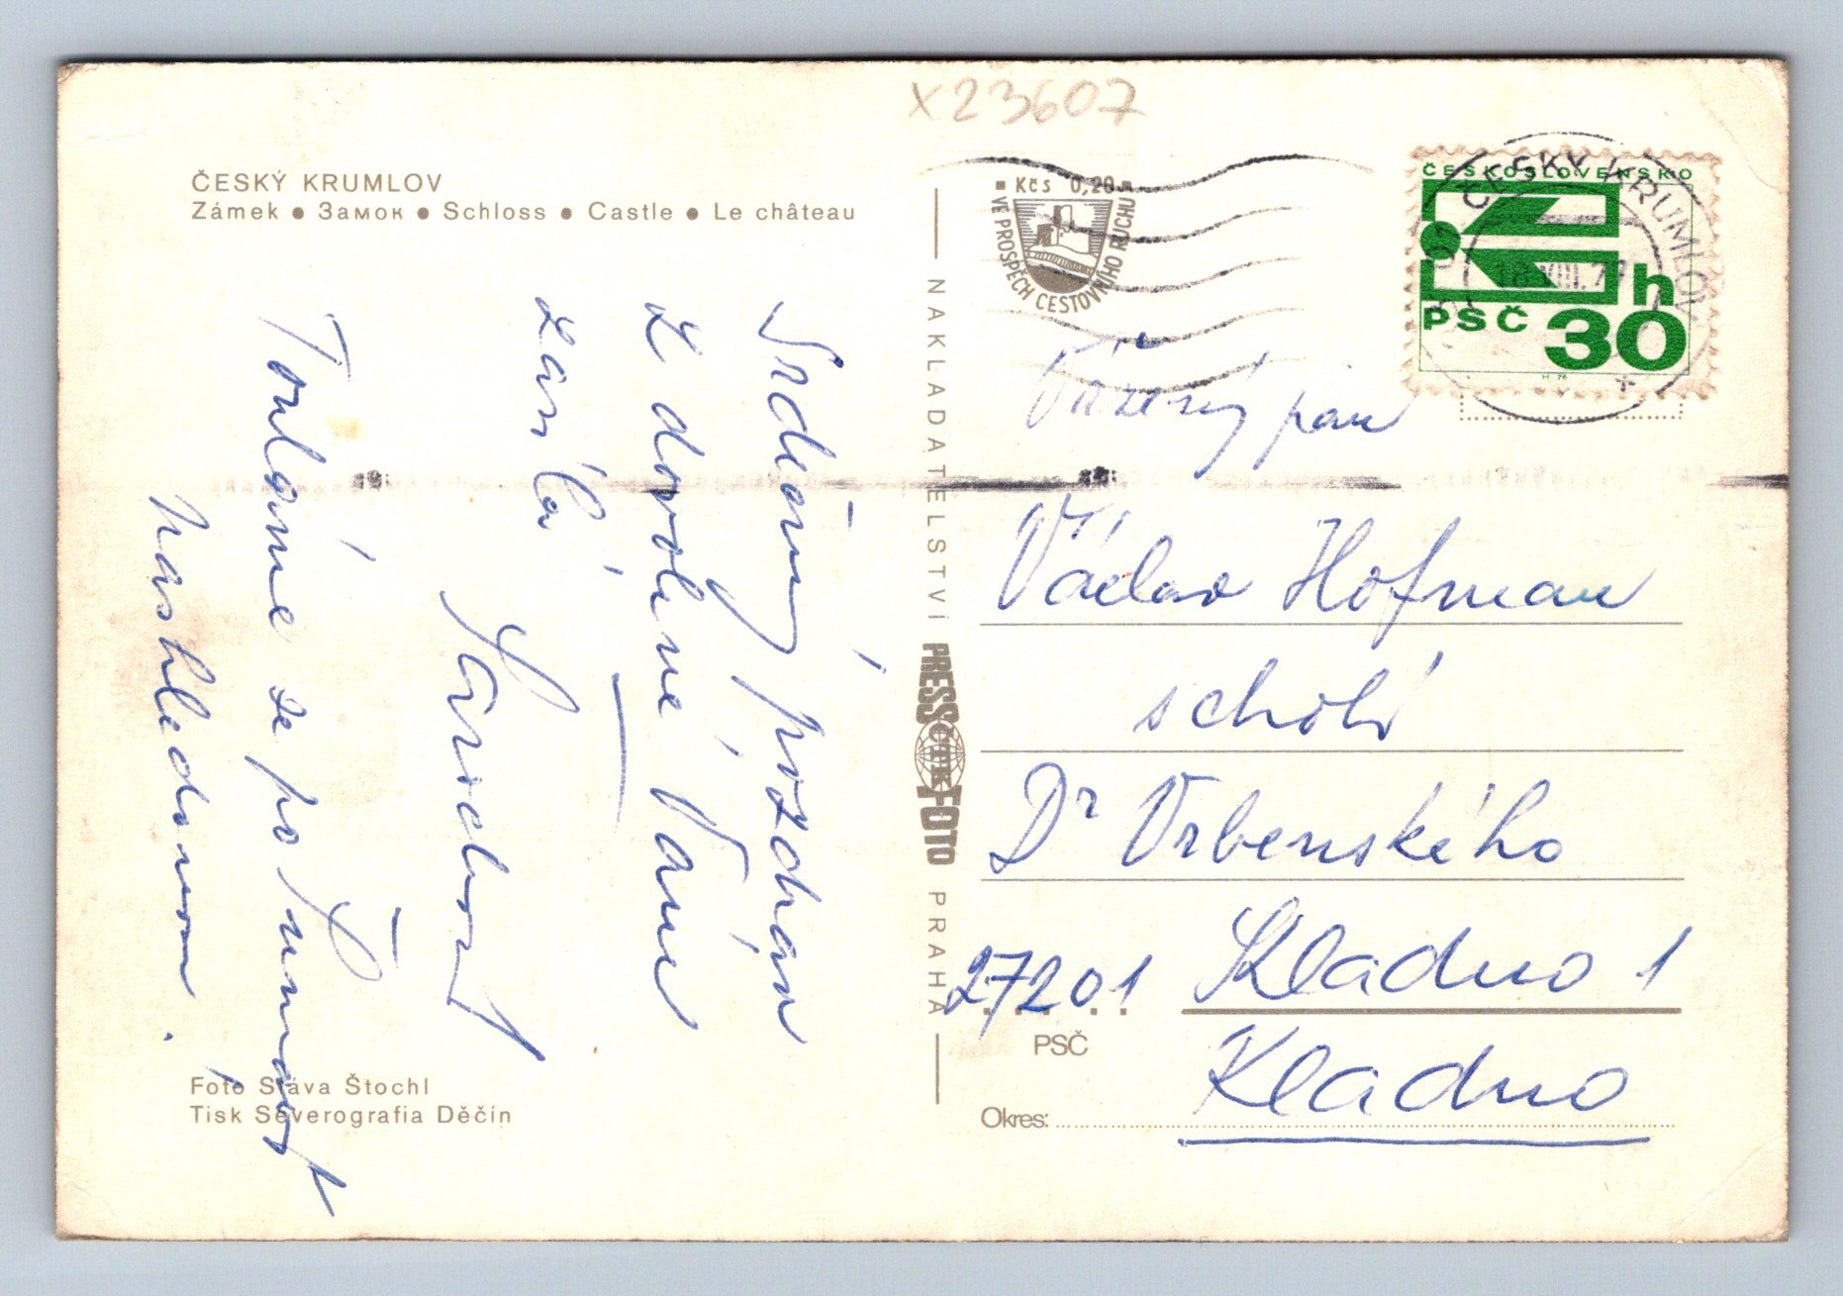 x23607
ČESKÝ KRUMLOV
Zámek • Замок • Schloss • Castle • Le château
Srdečný pozdrav
z dovolené Vám
zasílá
Touláme se po Šumavě
Nashledanou.
Foto Sláva Štochl
Tisk Severografia Děčín
NAKLADATELSTVÍ PRESSFOTO PRAHA
ČTK
Kčs 0,20
VE PROSPĚCH CESTOVNÍHO RUCHU
ČESKOSLOVENSKO
h
PSČ 30
ČESKÝ KRUMLOV
18.VIII.77
Vážený pan
Václav Hofman
Dr Vrbenského
27201 Kladno 1
PSČ
Kladno
Okres: